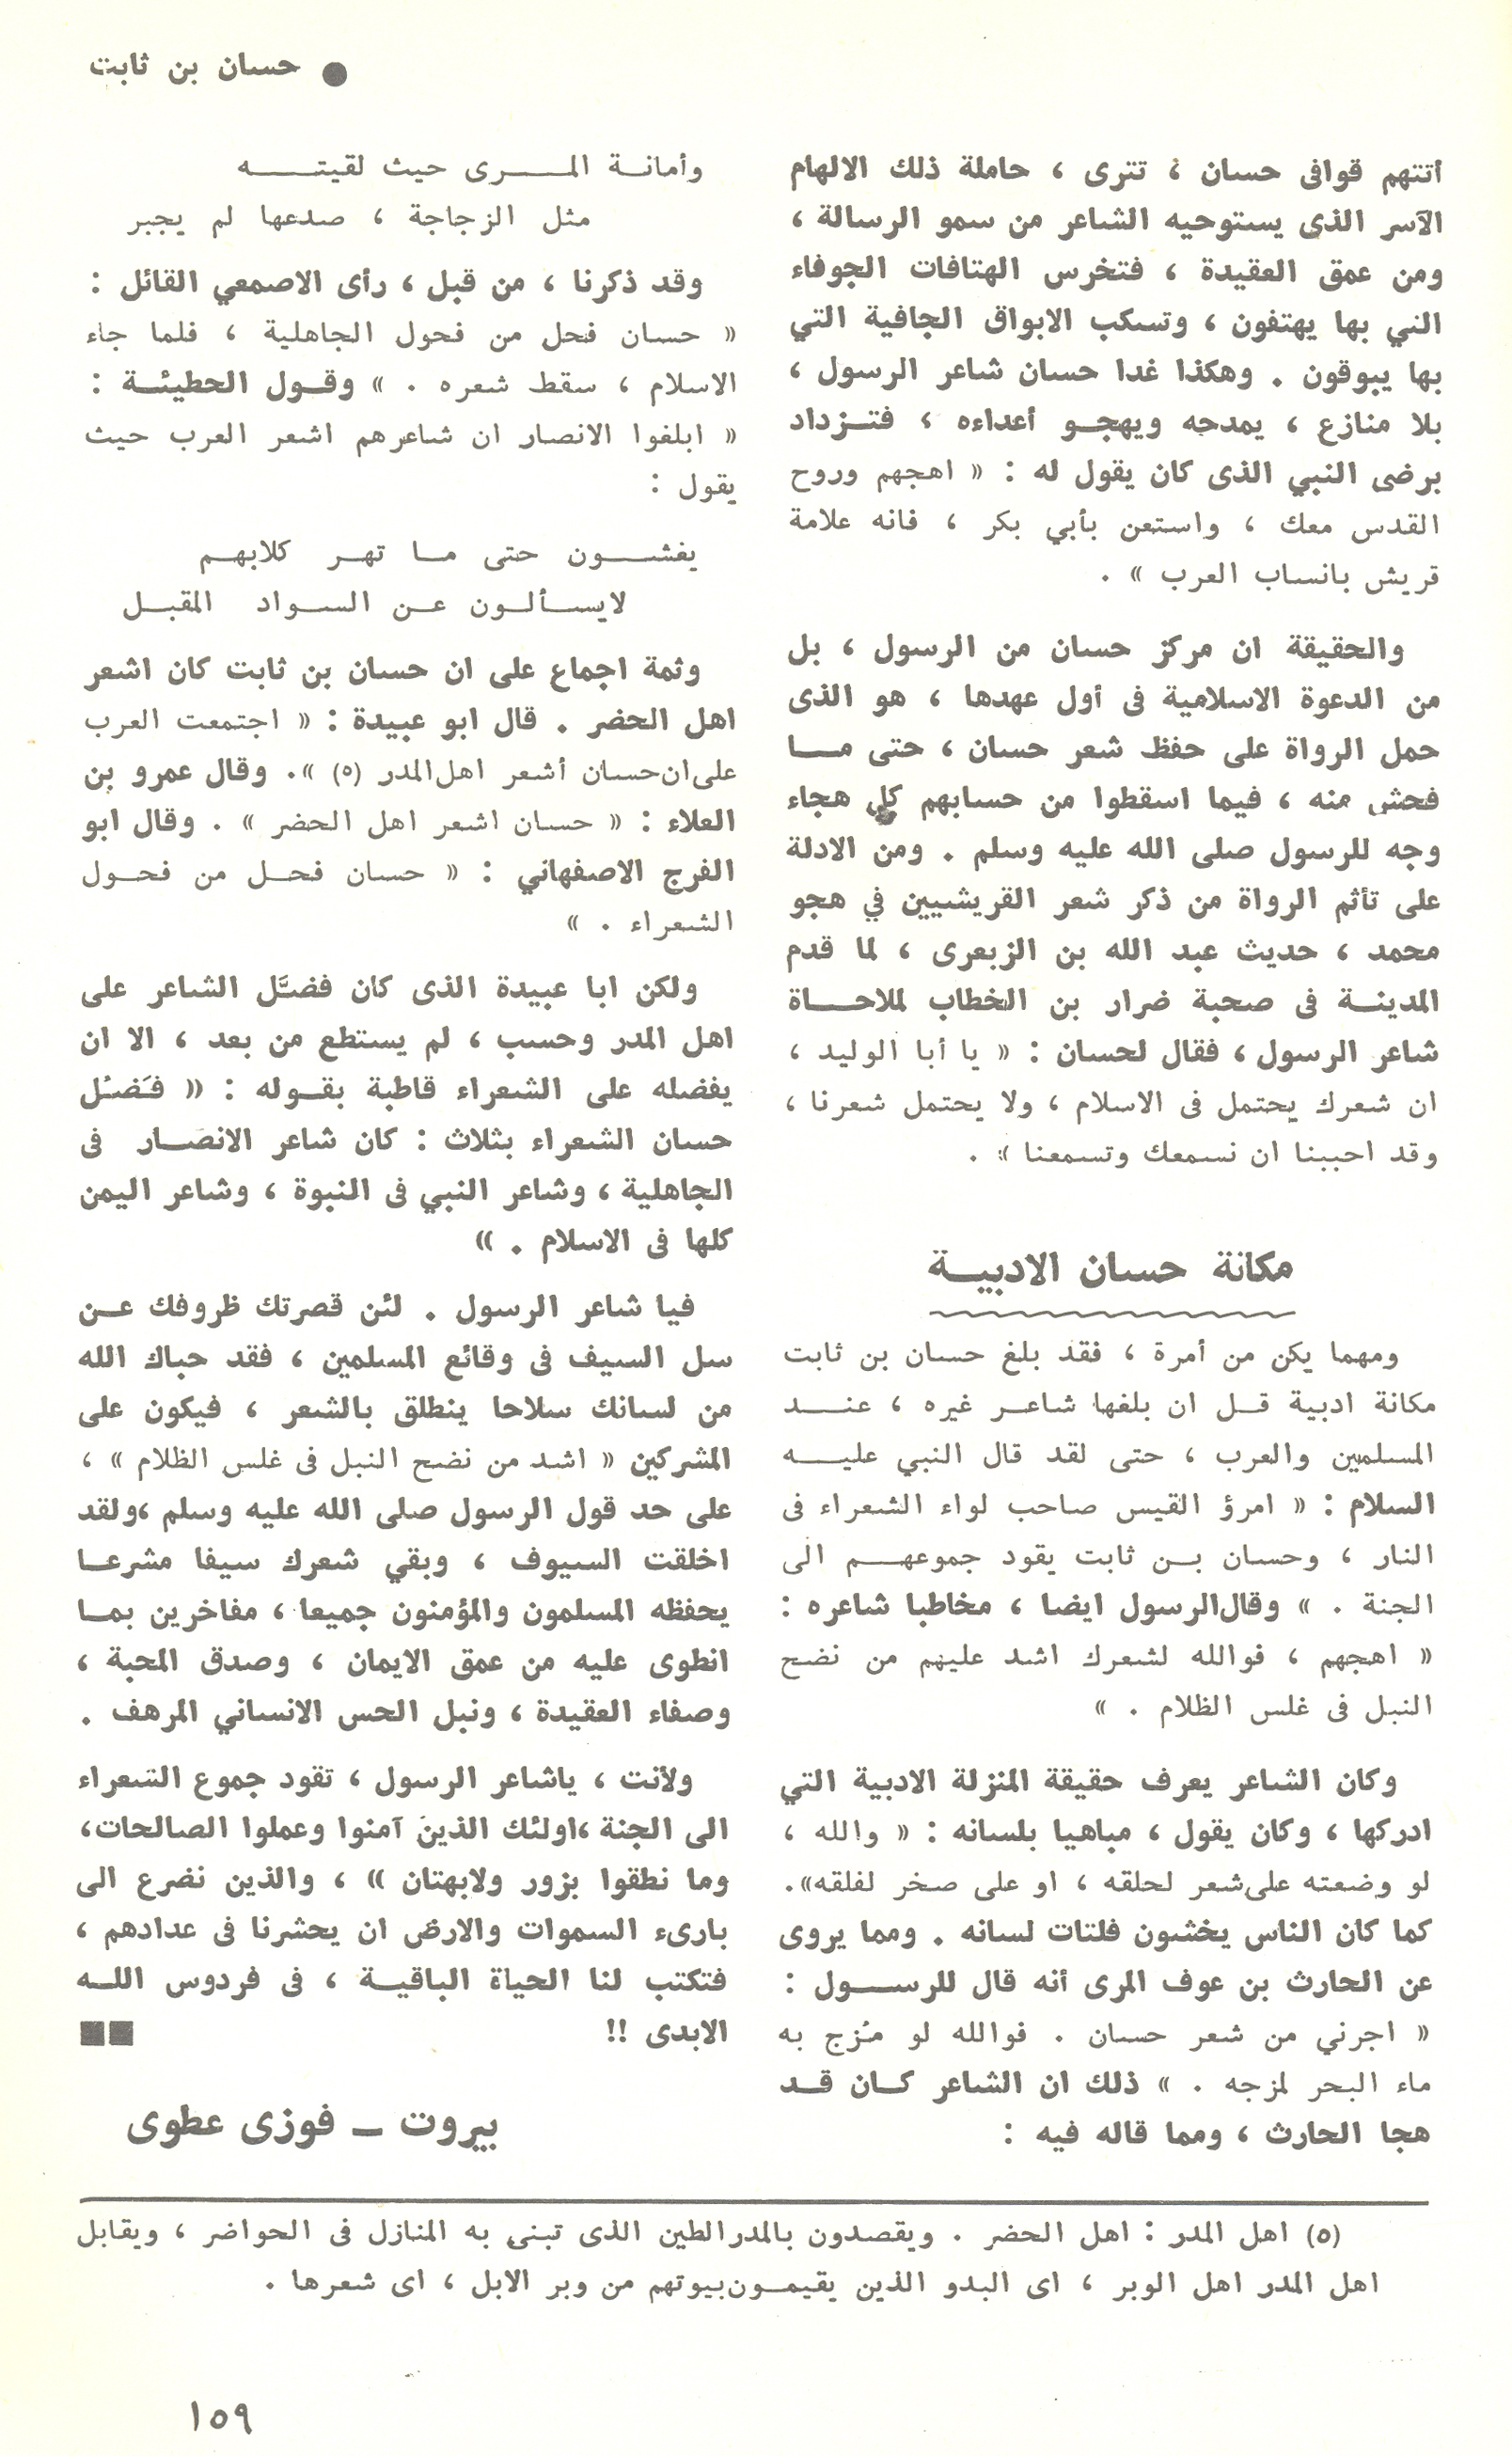 ● حسان بن ثابت
اتتهم قوافى حسان ، تترى ، حاملة ذلك الالهام
الآسر الذى يستوحيه الشاعر من سمو الرسالة ،
ومن عمق العقيدة ، فتخرس الهتافات الجوفاء
التي بها يهتفون ، وتسكب الابواق الجافية التي
بها يبوقون . وهكذا غدا حسان شاعر الرسول ،
بلا منازع ، يمدحه ويهجو أعداءه ، فتزداد
برضى النبي الذى كان يقول له : « اهجهم وروح
القدس معك ، واستعن بأبي بكر ، فانه علامة
قريش بانساب العرب » .
والحقيقة ان مركز حسان من الرسول ، بل
من الدعوة الاسلامية فى أول عهدها ، هو الذى
حمل الرواة على حفظ شعر حسان ، حتى ما
فحش منه ، فيما اسقطوا من حسابهم كل هجاء
وجه للرسول صلى الله عليه وسلم . ومن الادلة
على تأثم الرواة من ذكر شعر القريشيين في هجو
محمد ، حديث عبد الله بن الزبعرى ، لما قدم
المدينة فى صحبة ضرار بن الخطاب لملاحاة
شاعر الرسول ، فقال لحسان : « يا أبا الوليد ،
ان شعرك يحتمل فى الاسلام ، ولا يحتمل شعرنا ،
وقد احببنا ان نسمعك وتسمعنا » .
مكانة حسان الادبية
ومهما يكن من أمرة ، فقد بلغ حسان بن ثابت
مكانة ادبية قل ان بلغها شاعر غيره ، عند
المسلمين والعرب ، حتى لقد قال النبي عليه
السلام : « امرؤ القيس صاحب لواء الشعراء فى
النار ، وحسان بن ثابت يقود جموعهم الى
الجنة . » وقال الرسول ايضا ، مخاطبا شاعره :
« اهجهم ، فوالله لشعرك اشد عليهم من نضح
النبل فى غلس الظلام . »
وكان الشاعر يعرف حقيقة المنزلة الادبية التي
ادركها ، وكان يقول ، مباهيا بلسانه : « والله ،
لو وضعته على شعر لحلقه ، او على صخر لفلقه».
كما كان الناس يخشون فلتات لسانه . ومما يروى
عن الحارث بن عوف المرى أنه قال للرسول :
« اجرني من شعر حسان . فوالله لو مُزج به
ماء البحر لمزجه . » ذلك ان الشاعر كان قد
هجا الحارث ، ومما قاله فيه :
وأمانة المرى حيث لقيته
مثل الزجاجة ، صدعها لم يجبر
وقد ذكرنا ، من قبل ، رأى الاصمعي القائل :
« حسان فحل من فحول الجاهلية ، فلما جاء
الاسلام ، سقط شعره . » وقول الحطيئة :
« ابلغوا الانصار ان شاعرهم اشعر العرب حيث
يقول :
يغشون حتى ما تهر كلابهم
لايسألون عن السواد المقبل
وثمة اجماع على ان حسان بن ثابت كان اشعر
اهل الحضر . قال ابو عبيدة : « اجتمعت العرب
على ان حسان أشعر اهل المدر (٥) ». وقال عمرو بن
العلاء : « حسان اشعر اهل الحضر » . وقال ابو
الفرج الاصفهاني : « حسان فحل من فحول
الشعراء . »
ولكن ابا عبيدة الذى كان فضَّل الشاعر على
اهل المدر وحسب ، لم يستطع من بعد ، الا ان
يفضله على الشعراء قاطبة بقوله : « فَضُل
حسان الشعراء بثلاث : كان شاعر الانصار فى
الجاهلية ، وشاعر النبي فى النبوة ، وشاعر اليمن
كلها فى الاسلام . »
فيا شاعر الرسول . لئن قصرتك ظروفك عن
سل السيف فى وقائع المسلمين ، فقد حباك الله
من لسانك سلاحا ينطلق بالشعر ، فيكون على
المشركين « اشد من نضح النبل فى غلس الظلام » ،
على حد قول الرسول صلى الله عليه وسلم ،ولقد
اخلقت السيوف ، وبقي شعرك سيفا مشرعا
يحفظه المسلمون والمؤمنون جميعا ، مفاخرين بما
انطوى عليه من عمق الايمان ، وصدق المحبة ،
وصفاء العقيدة ، ونبل الحس الانساني المرهف .
ولأنت ، ياشاعر الرسول ، تقود جموع الشعراء
الى الجنة ،اولئك الذين آمنوا وعملوا الصالحات،
وما نطقوا بزور ولابهتان » ، والذين نضرع الى
بارىء السموات والارض ان يحشرنا فى عدادهم ،
فتكتب لنا الحياة الباقية ، فى فردوس الله
الابدى !!
بيروت ـ فوزى عطوى
(٥) اهل المدر : اهل الحضر . ويقصدون بالمدر الطين الذى تبنى به المنازل فى الحواضر ، ويقابل
اهل المدر اهل الوبر ، اى البدو الذين يقيمون بيوتهم من وبر الابل ، اى شعرها .
١٥٩